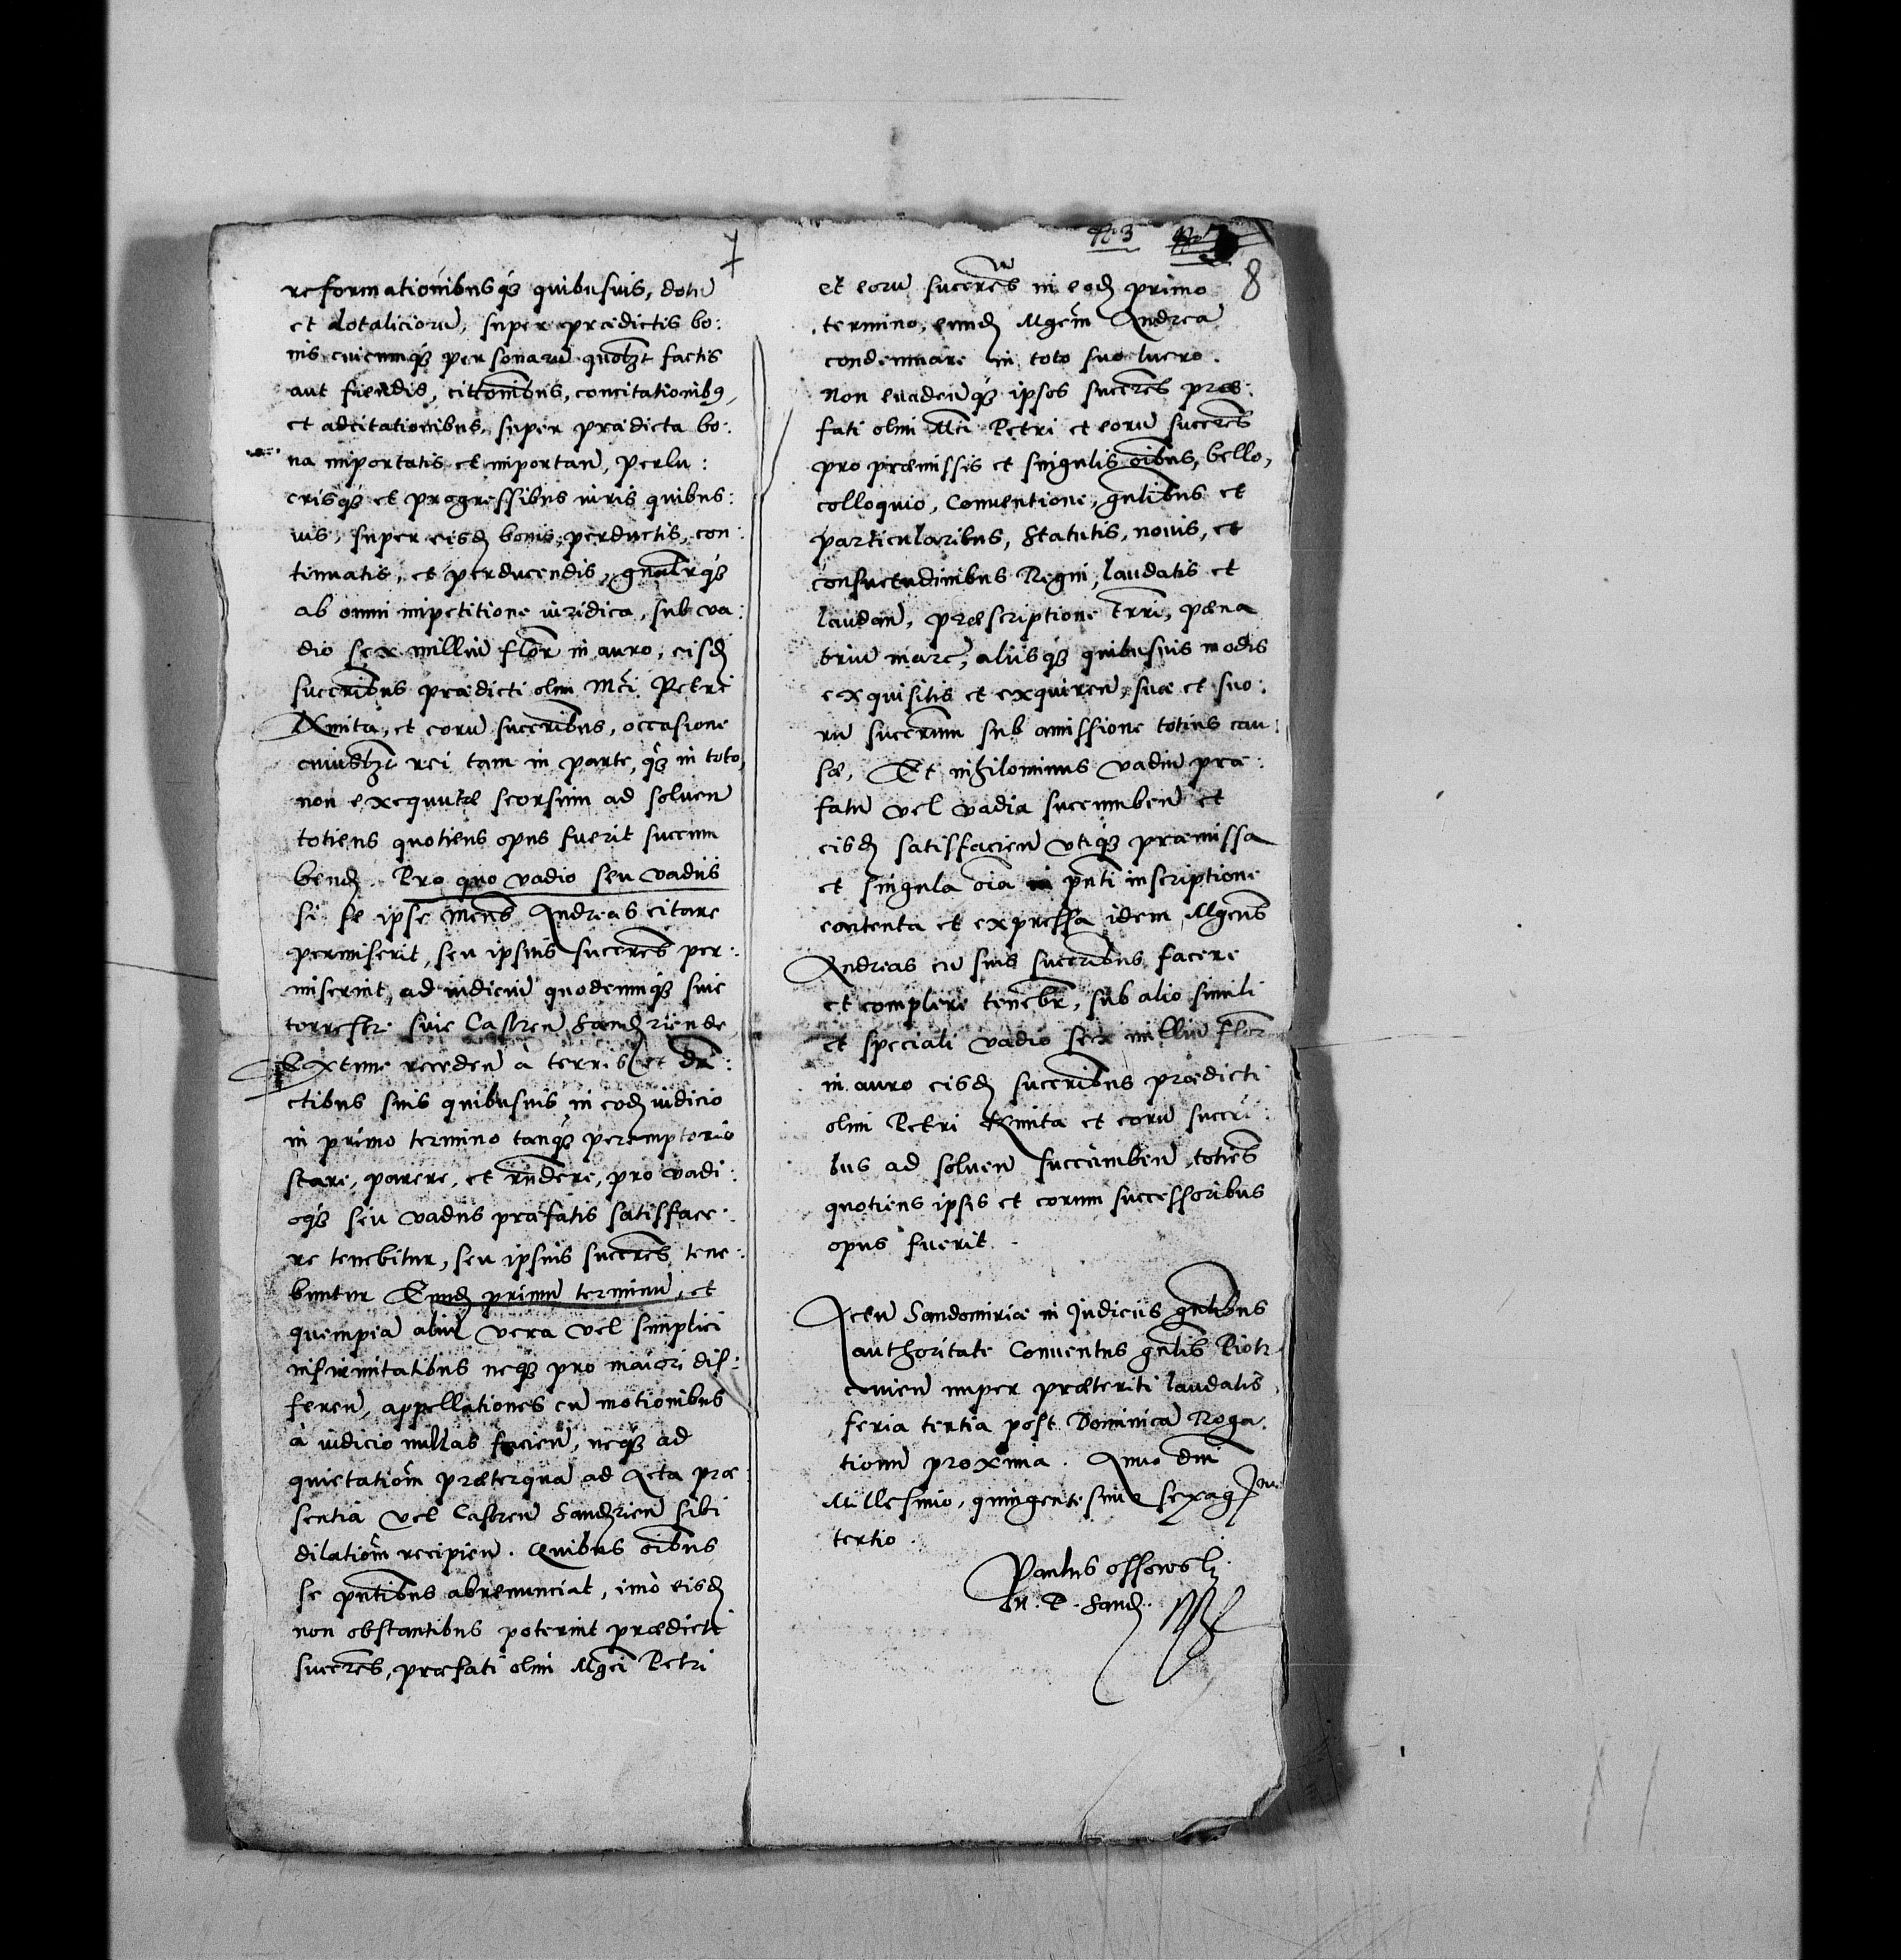 7
reformationibusq₃ quibusuis, dotū
et dotaliciorū, super prædictis bo:
nis cuicumq₃ personarū quobz̄t factis
aut fiendis, cittōnibus, concitationib9,
et adcitationibus, super prædicta bo:
na importatis et importan̄, perlu:
crisq₃ et progressibus iuris quibus:
uis, super eisd̄ bonis, perductis, con:
tinuatis, et perducendis, gn̄alrq₃
ab omni impetitione iuridica, sub va:
dio sex milliū flor̄ in auro, eisd̄
succribus prædicti olim Mci Petri
Kmita, et eorū succribus, occasione
cuiuslz̄t rei tam in parte, q̄₃ in toto,
non exequutæ seorsim ad soluen̄
totiens quotiens opus fuerit succum
bend̄. Pro quo vadio seu vadiis
si se ipse Mcus Andreas citare
permiserit, seu ipsius succres per:
miserint, ad iudiciū quodcumq₃ siue
terrestr̄ siue Castren̄ Sand̄rien de
Extunc receden̄ à terris et di:
ctibus suis quibusuis in eod̄ iudicio
in primo termino tanq₃ peremptorio
stare, parere, et rn̄dere, pro vadi:
oq₃ seu vadiis præfatis satisface:
re tenebitur, seu ipsius succres tene:
buntur Eund̄ primū terminū, et
quempiā aliū vera vel simplici
infirmitatibus neq₃ pro maiori dif:
feren̄, appellationes cū motionibus
à iudicio nullas facien̄, neq₃ ad
quietatiōm præterquā ad Acta præ:
sentia vel Castren̄ Sand̄rien̄ sibi
dilatiōm recipien̄. Quibus oībus
se pn̄tibus abrenunciat, imò eisd̄
non obstantibus poterint prædicti
succres, præfati olim Mgci Petri
No 3
8
et eorū succres in eod̄ primo
termino, eund̄ Mgcm Andreā
condemnare in toto suo lucro.
Non euaden̄q₃ ipsos succres præ:
fati olim Mci Petri et eorū succres
pro præmissis et singulis oībus, bello,
colloquio, Conuentione, gn̄libus et
particularibus, statutis, nouis, et
consuetudinibus Regni, laudatis et
laudan̄, præscriptione trri, pæna
triū marc̄, aliisq₃ quibusuis modis
exquisitis et exquiren̄, suæ et suo:
rū succrum sub amissione totius cau:
sæ, Et nihilominus vadiū præ:
fatū vel vadia succumben̄ et
eisd̄ satisfacien̄ vtiq₃ præmissa
et singula oīa in pn̄ti inscriptione
contenta et expressa idem Mgcus
Andreas cū suis succribus facere
et complere tenebr̄, sub alio simili
et speciali vadio sex milliū flor̄
in auro eisd̄ succribus prædicti
olim Petri Kmita et eorū succri:
bus ad soluen̄ succumben̄, toties
quotiens ipsis et eorum successoribus
opus fuerit.
Actū Sandomiriæ in Judiciis gn̄libus
authoritate Conuentus gn̄lis Piotr
couien̄ nuper præteriti laudatis,
feria tertia post Dominicā Roga:
tionū proxima. Anno dn̄i
Millesimo, quingentesimo sexagmo
tertio.
Paulus Ossowsky
N. T. Sand̄.